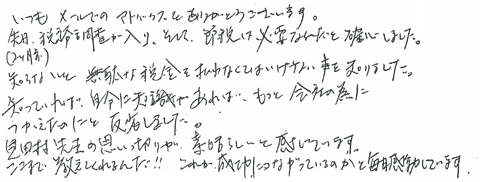 いつもメールでのアドバイスをありがとうございます。
先日、税務調査が入り、そして、節税は必要なんだと確心しました。
(2ヶ月前)
知らないと無駄な税金を払わなくてはいけない事を知りました。
知っていれば、自分に知識があれば、もっと会社の為に
うかったのにと反省しました。
見田村先生の思いっ切りが、素晴らしいと感じています。
ここまで教えてくれるんだ!! これが成功につながっているのかと毎日感動しています。